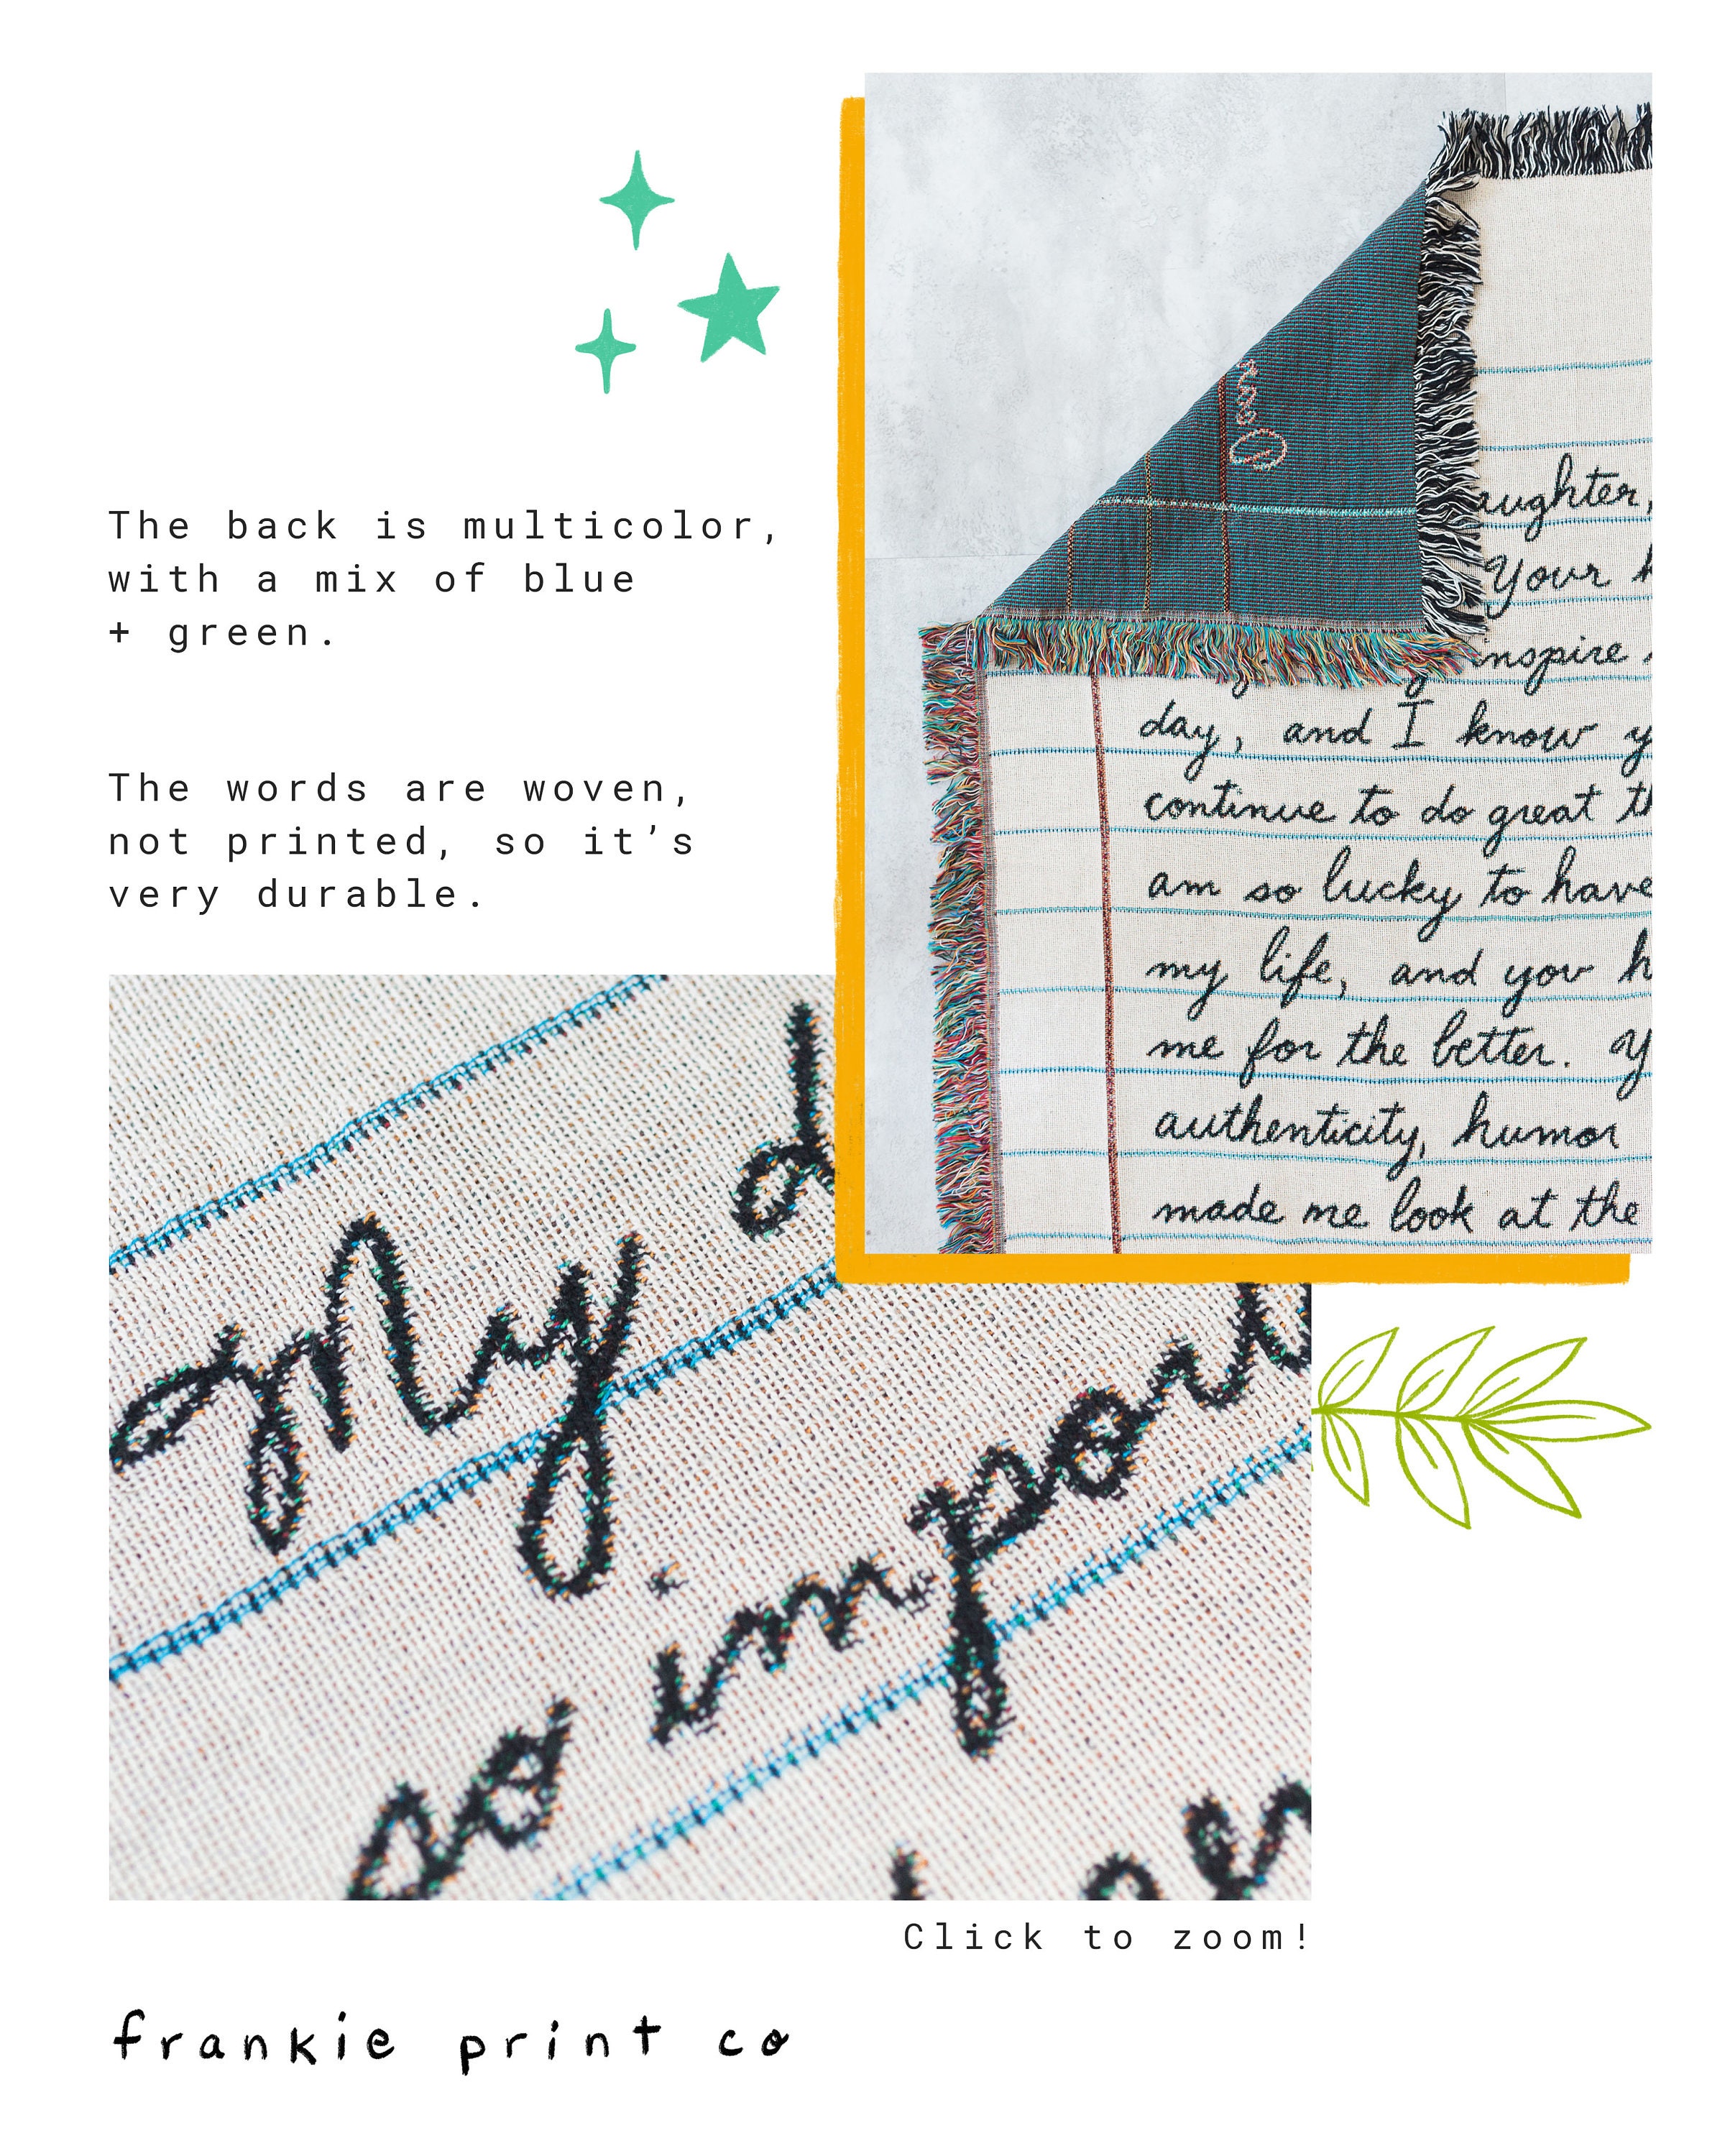 The back is multicolor,
with a mix of blue
+ green.
The words are woven,
not printed, so it's
very durable.
Your
inspire
day, and I know
continue to do great
am so lucky to have
my life, and you
me for the better.
authenticity, humor
made me look at the
My
so
Click to zoom!
frankie print co